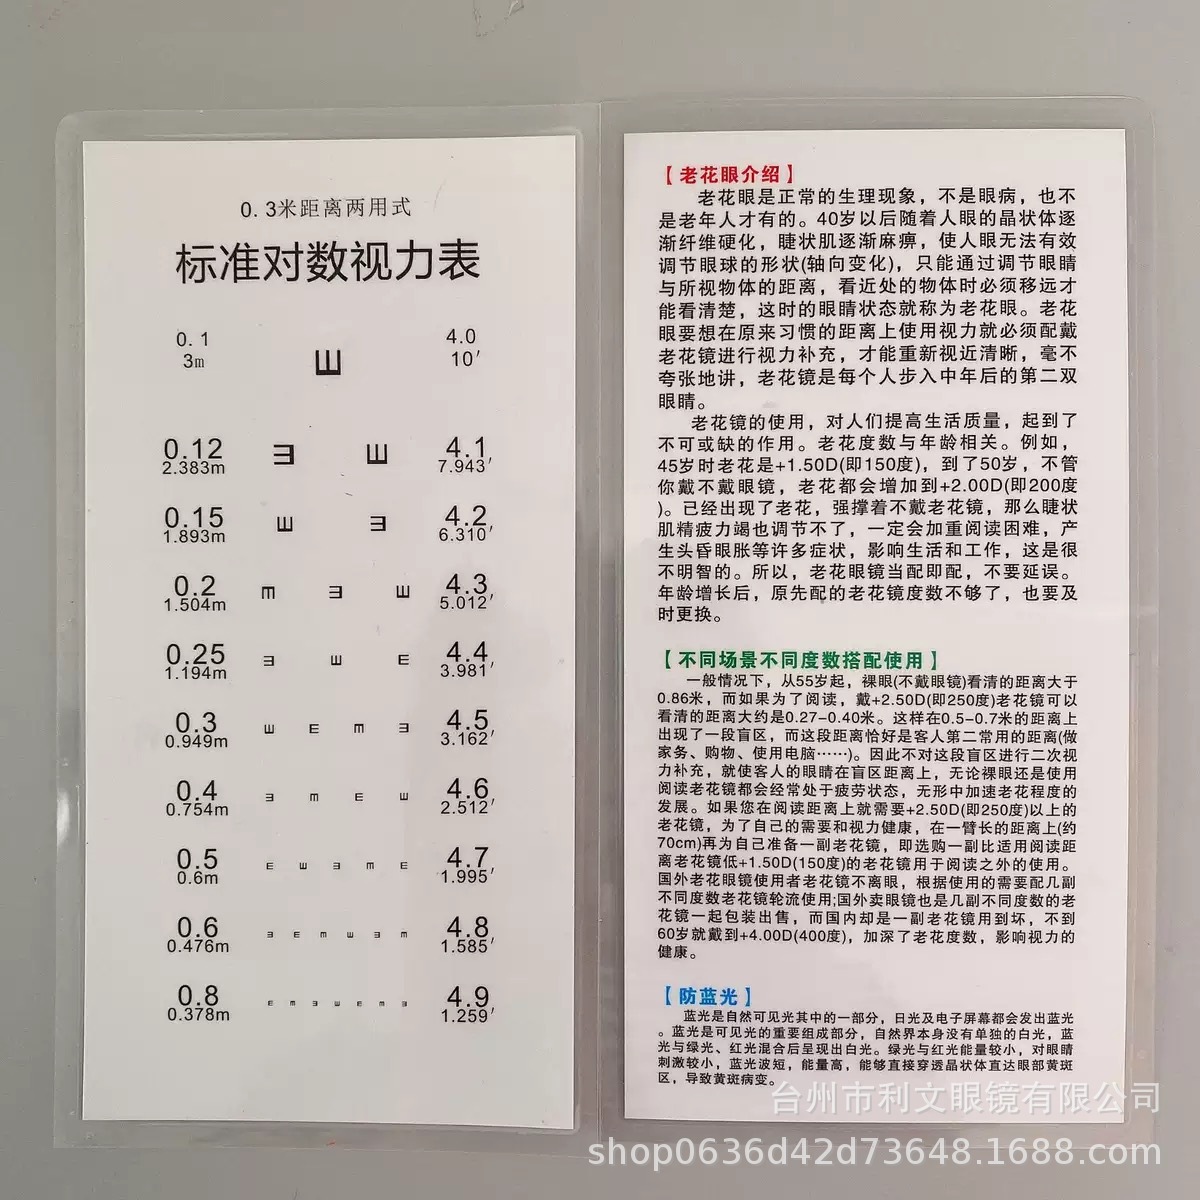 0.3米距离两用式
标准对数视力表
0.1 4.0
3m 10′
0.12 4.1
2.383m 7.943′
0.15 4.2
1.893m 6.310′
0.2 4.3
1.504m 5.012′
0.25 4.4
1.194m 3.981′
0.3 4.5
0.949m 3.162′
0.4 4.6
0.754m 2.512′
0.5 4.7
0.6m 1.995′
0.6 4.8
0.476m 1.585′
0.8 4.9
0.378m 1.259′
【老花眼介绍】
老花眼是正常的生理现象，不是眼病，也不
是老年人才有的。40岁以后随着人眼的晶状体逐
渐纤维硬化，睫状肌逐渐麻痹，使人眼无法有效
调节眼球的形状(轴向变化)，只能通过调节眼睛
与所视物体的距离，看近处的物体时必须移远才
能看清楚，这时的眼睛状态就称为老花眼。老花
眼要想在原来习惯的距离上使用视力就必须配戴
老花镜进行视力补充，才能重新视近清晰，毫不
夸张地讲，老花镜是每个人步入中年后的第二双
眼睛。
老花镜的使用，对人们提高生活质量，起到了
不可或缺的作用。老花度数与年龄相关。例如，
45岁时老花是+1.50D(即150度)，到了50岁，不管
你戴不戴眼镜，老花都会增加到+2.00D(即200度
)。已经出现了老花，强撑着不戴老花镜，那么睫状
肌精疲力竭也调节不了，一定会加重阅读困难，产
生头昏眼胀等许多症状，影响生活和工作，这是很
不明智的。所以，老花眼镜当配即配，不要延误。
年龄增长后，原先配的老花镜度数不够了，也要及
时更换。
【不同场景不同度数搭配使用】
一般情况下，从55岁起，裸眼(不戴眼镜)看清的距离大于
0.86米，而如果为了阅读，戴+2.50D(即250度)老花镜可以
看清的距离大约是0.27-0.40米。这样在0.5-0.7米的距离上
出现了一段盲区，而这段距离恰好是客人第二常用的距离(做
家务、购物、使用电脑……)。因此不对这段盲区进行二次视
力补充，就使客人的眼睛在盲区距离上，无论裸眼还是使用
阅读老花镜都会经常处于疲劳状态，无形中加速老花程度的
发展。如果您在阅读距离上就需要+2.50D(即250度)以上的
老花镜，为了自己的需要和视力健康，在一臂长的距离上(约
70cm)再为自己准备一副老花镜，即选购一副比适用阅读距
离老花镜低+1.50D(150度)的老花镜用于阅读之外的使用。
国外老花眼镜使用者老花镜不离眼，根据使用的需要配几副
不同度数老花镜轮流使用;国外卖眼镜也是几副不同度数的老
花镜一起包装出售，而国内却是一副老花镜用到坏，不到
60岁就戴到+4.00D(400度)，加深了老花度数，影响视力的
健康。
【防蓝光】
蓝光是自然可见光其中的一部分，日光及电子屏幕都会发出蓝光
。蓝光是可见光的重要组成部分，自然界本身没有单独的白光，蓝
光与绿光、红光混合后呈现出白光。绿光与红光能量较小，对眼睛
刺激较小，蓝光波短，能量高，能够直接穿透晶状体直达眼部黄斑
区，导致黄斑病变。
台州市利文眼镜有限公司
shop0636d42d73648.1688.com